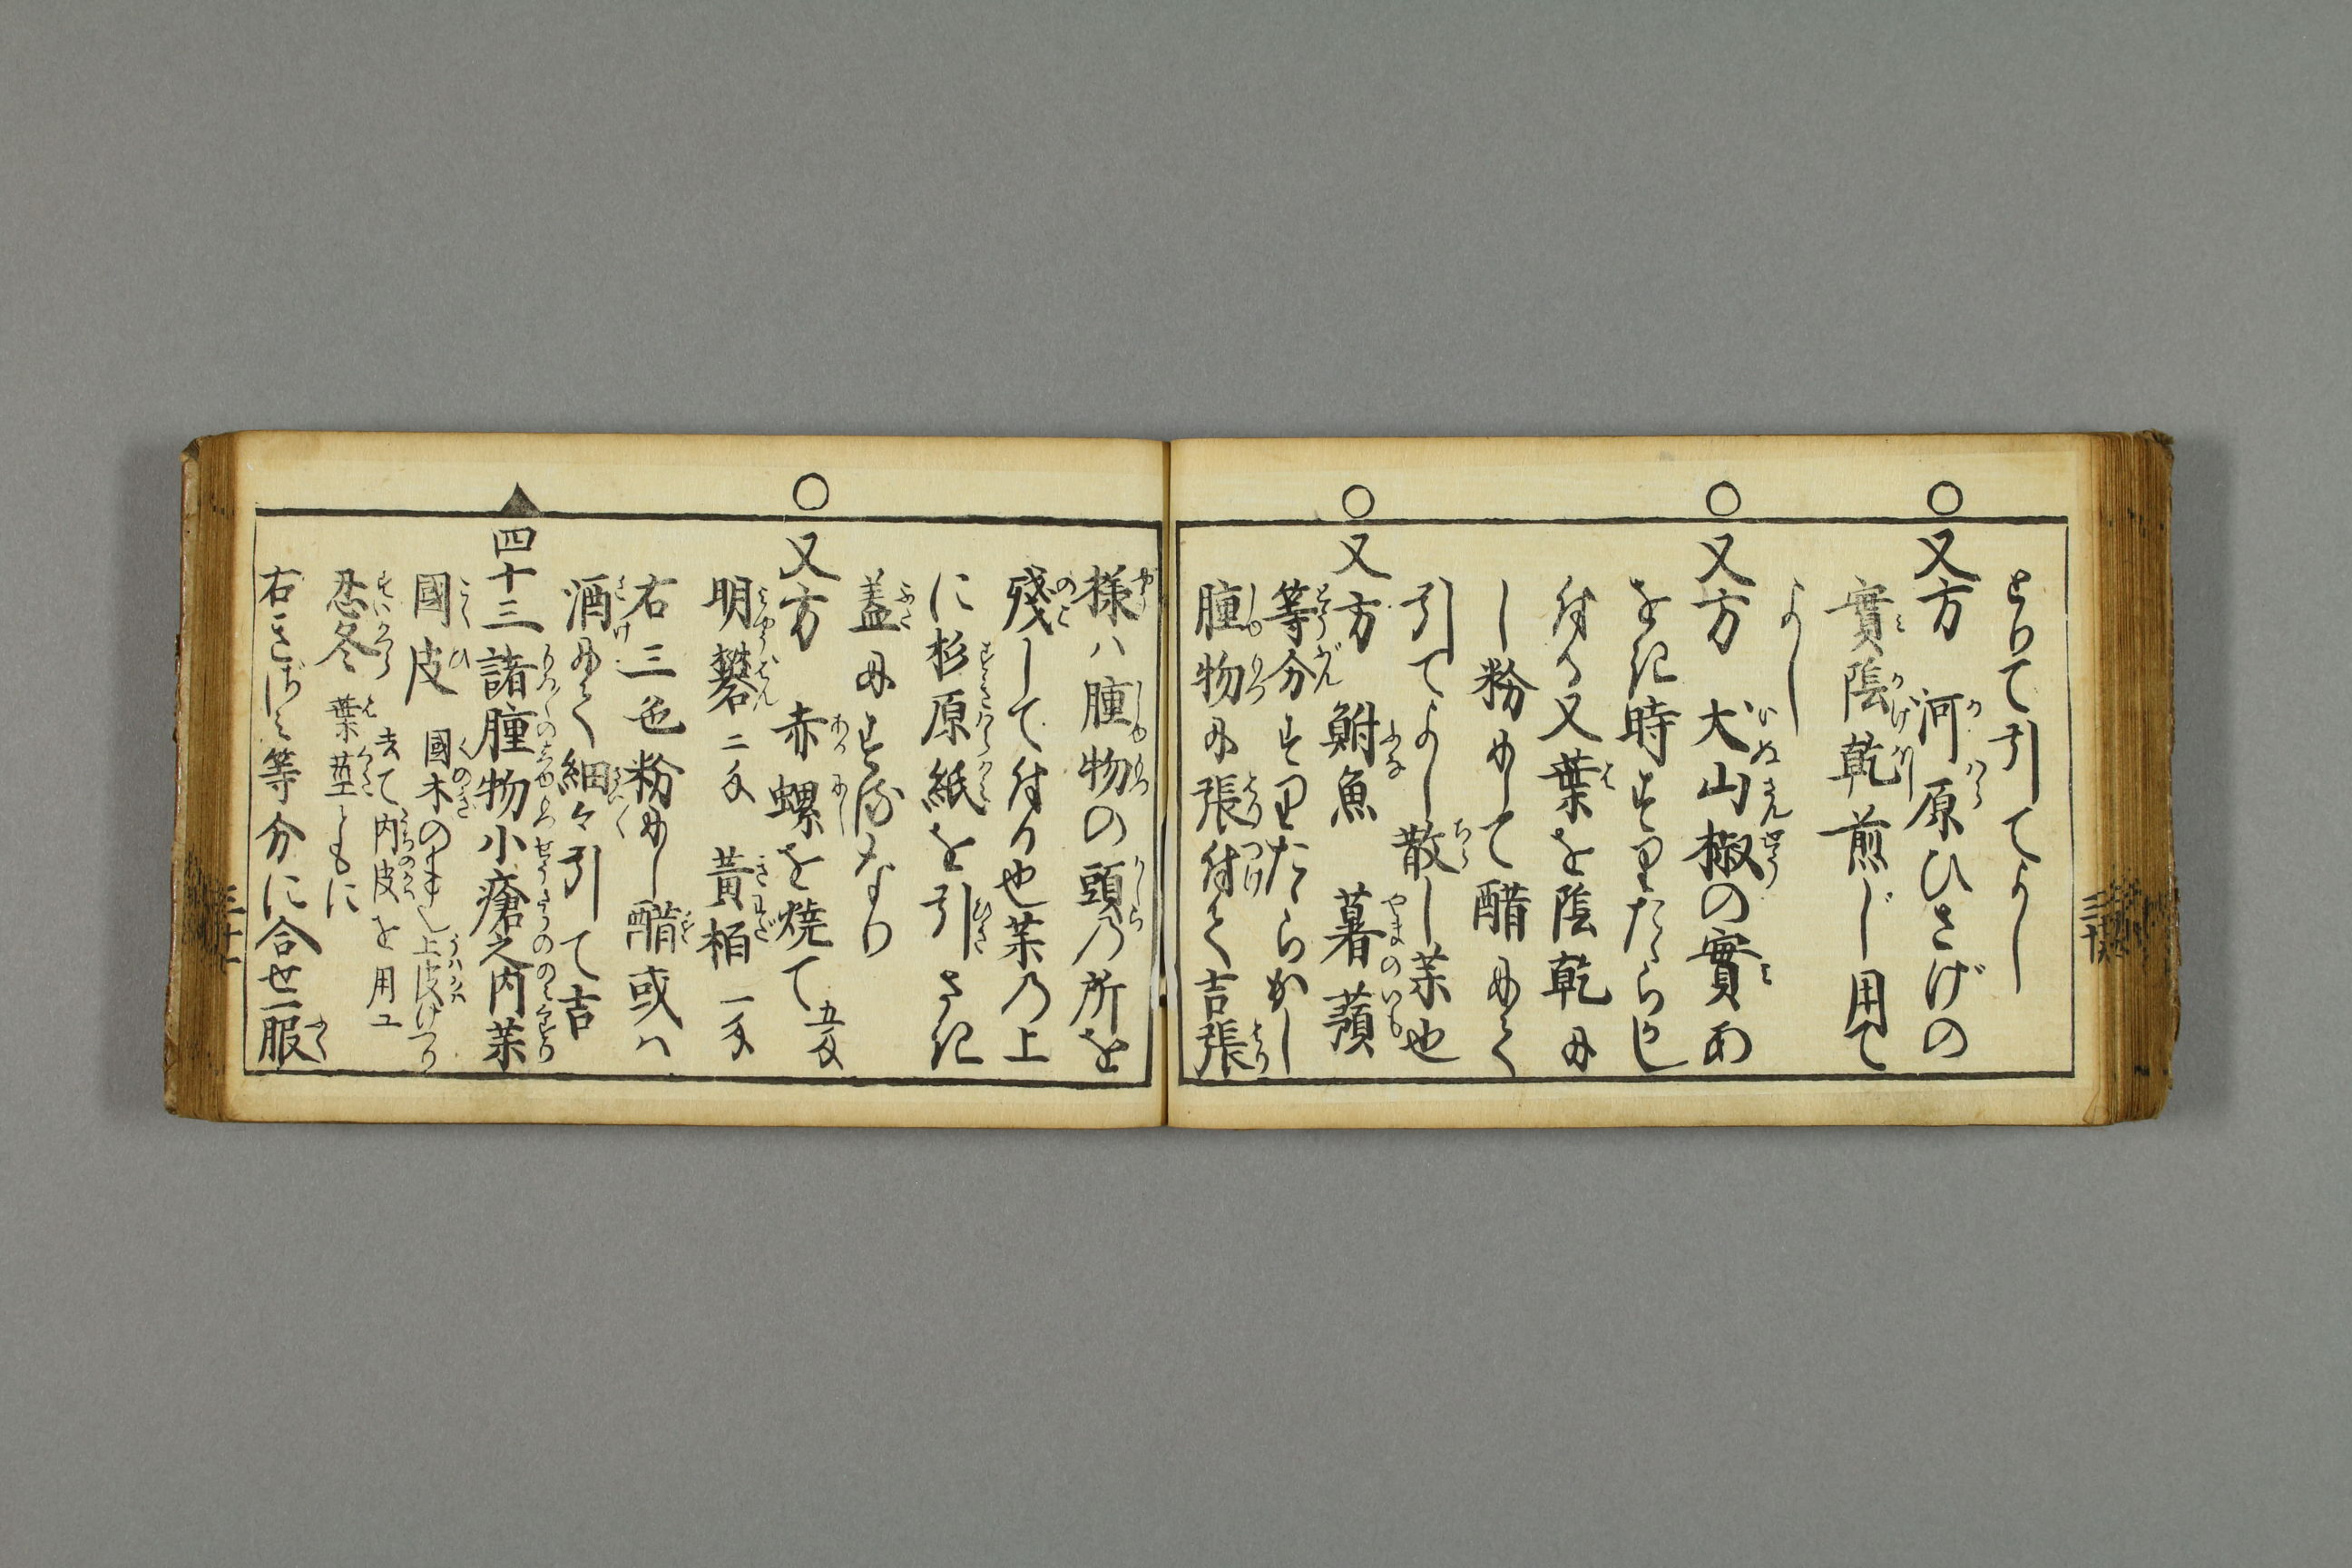 とりて引てよし
○又方 河原ひさげの
實陰乾煎じ用て
よし
○又方 犬山椒の實あ
をき時すりたゝらし
付る又葉を陰乾に
し粉にして醋にて
引てよし散し薬也
○又方 鮒魚 薯蕷
等分すりたゝらかし
腫物に張付て吉張
様ハ腫物の頭乃所を
殘して付る也薬乃上
に杉原紙を引さき
蓋にするなり
○又方 赤螺を焼て 五匁
明礬 二匁 黄栢 一匁
右三色粉にし醋或ハ
酒にて細々引て吉
▲四十三 諸腫物小瘡之内薬
國皮 國木の上皮けづり
去て内皮を用ユ
忍冬 葉茎ともに
右きざみ等分に合せ一服